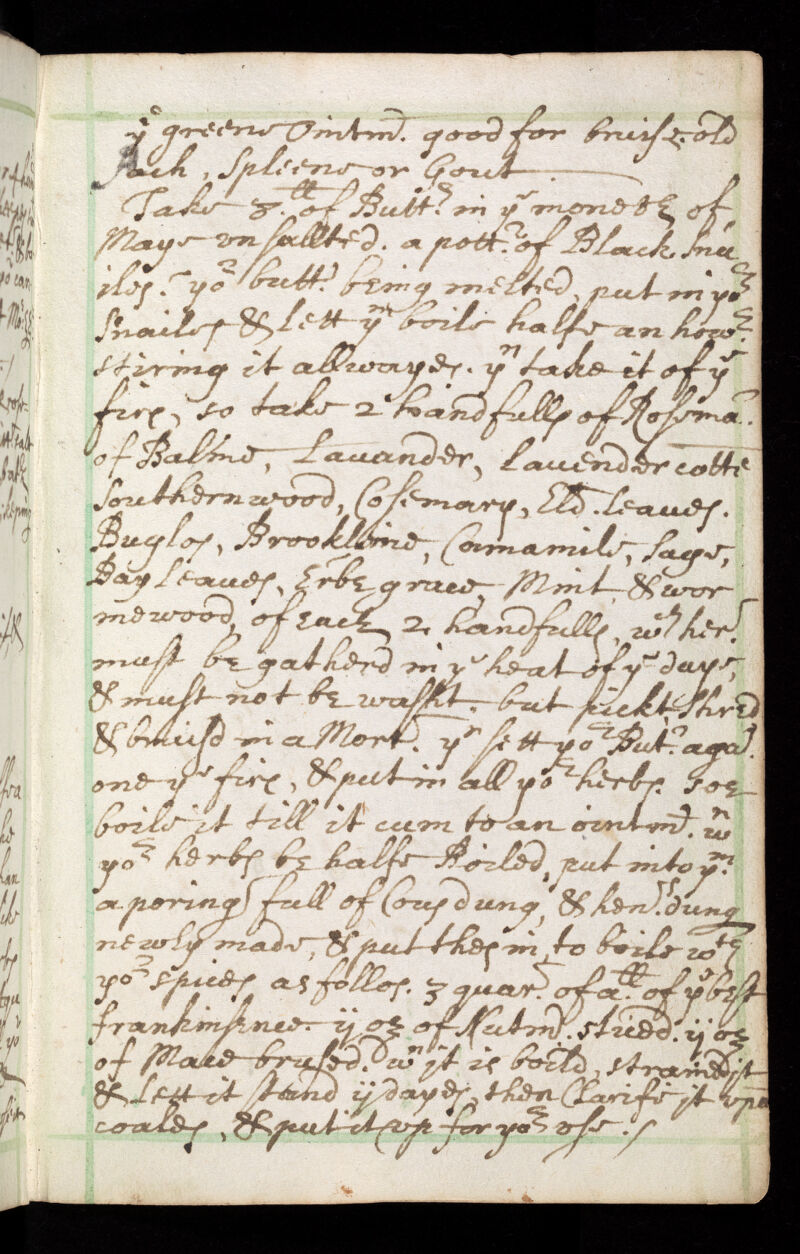 ye greene Ointmt. good for bruise old
Ach, Spleene or Gout
Take 3 tt of Buttr. in ye moneth of
Maye vnsallted. a pottr. of Black Sna
iles. yor buttr. being melted, put in yor
Snailes & lett ym boile halfe an howr.
stiring it allwayes. yn take it of ye
fire, so take 2 handfulls of Rosema.
of Balme, Lauander, Lauender cotte
Southernwood, Cosemary, Eld. leaues.
Buglos, Brooklime, Camamile, Sage,
Bay leaues, Erbe grace, Mint & wor
mewood, of each 2 handfulls, wch her.
must be gatherd in ye heat of ye daye,
& must not be washt. but pickt, Shred
& bruisd in a Mort. yn sett yor But. aga.
one ye fire, & put in all yor herbs. soe
boile it till it cum to an ointmt. wn
yor herbs be halfe Boiled, put into ym.
a poring. full of Cous dung, & hens. dung
newly made, & put thes in, to boile wth
yor spices as follos. 3 quar. of a tt. of ye best
frankinsence. ij oz of Nutm. sliced. ij oz
of Mace brused. wn it is boild, strained it
& lett it stand ij dayes, then Clarifie it vpon
coales, & put it vp for yor vse./